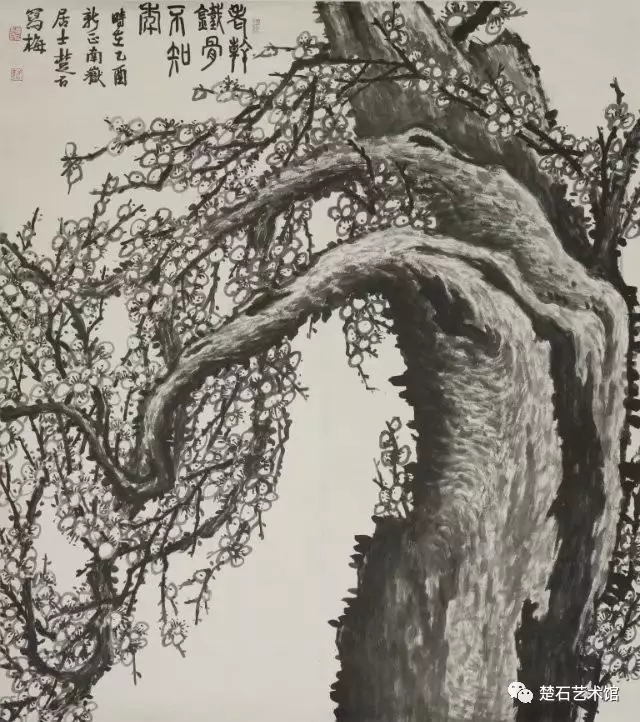 老幹
鐵骨
不知
年
時在乙酉
新正南嶽
居士楚石
寫梅
楚石艺术馆